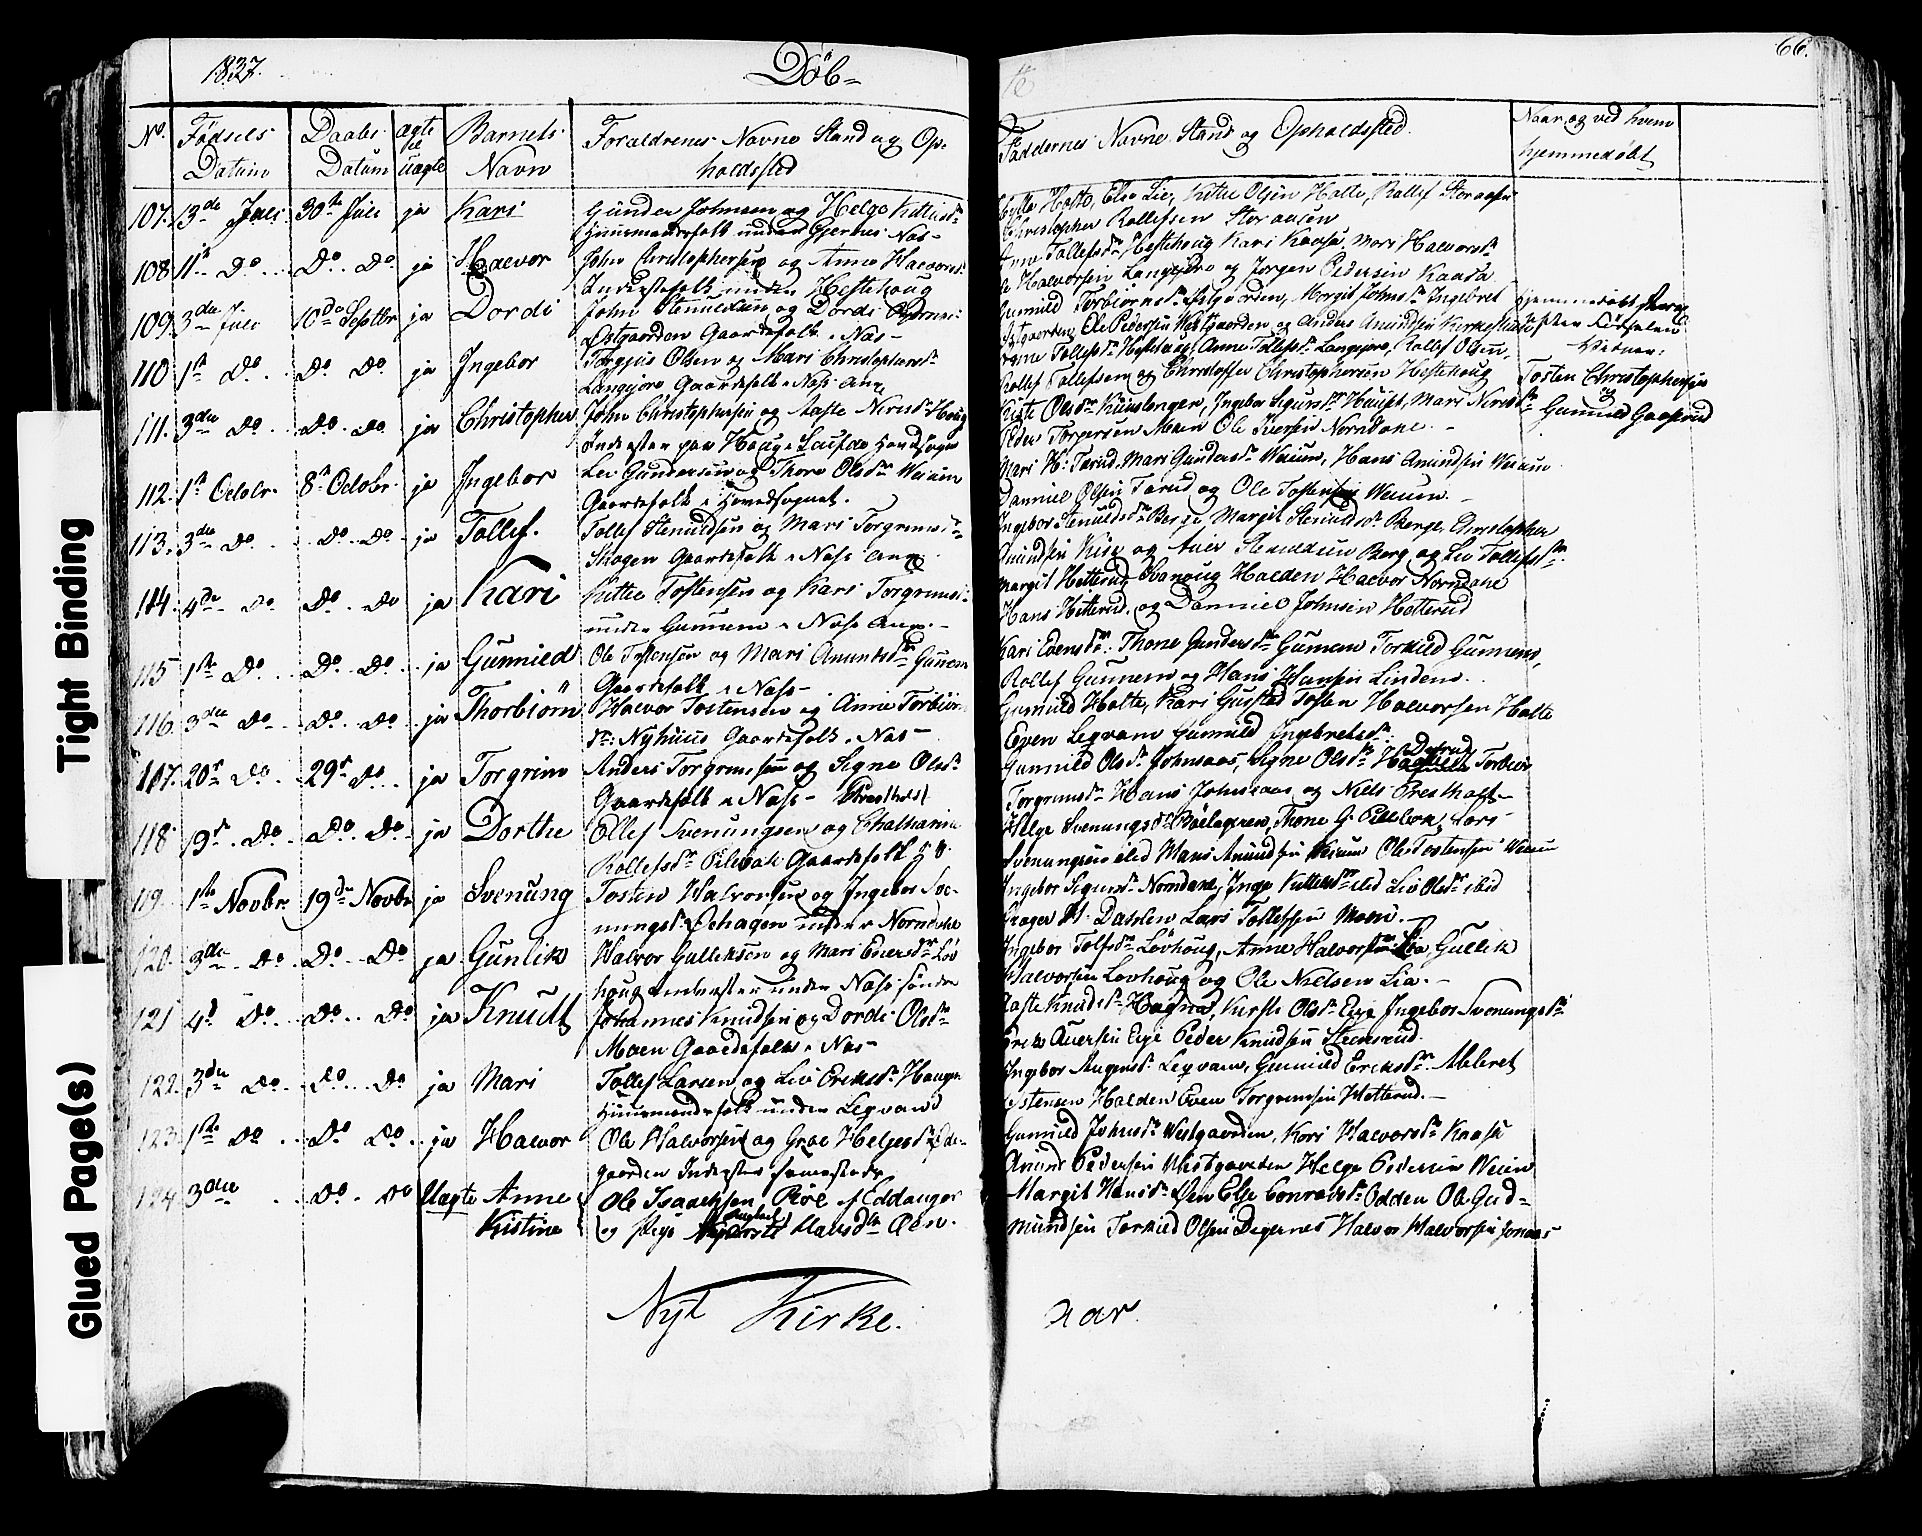 1837.
Döb=
te
66.
No. Fødsels Datum
Daabs Datum
ægte el uægte
Barnets Navn
Forældrenes Navne Stand og Op-
holdssted
Faddernes Navne Stand og Opholdssted.
Naar og ved hvem
hjemmedøbt
107. 3de Juli 30te Juli ja Kari Gunder Johnsen og Helge Kittilsdr
Huusmandsfolk under Gjernes Nas-
Holte, Else Lie, Kittil Olsen Holte, Rollef Storaasen
Christopher Rollefsen Storaasen
108 11te Do Do Do ja Halvor John Christophersen og Anne Halvorsdr
Inderstefolk under Hestehoug
Anne Tollefsdr Hestehoug Kari Kaasa, Mari Halvorsdr
Halvorsen Langejore og Jorgen Pedersen Kaasa
109. 3die Juli 10de Septbr ja Dordi John Stenulsen og Dordi
Østgaarden Gaardefolk i Nas-
Gunnild Torbiørnsdr Østgaarden, Margit Johnsdr Ingebret
Østgaarden Ole Pedersen Westgaarden og Anders Amundsen
hjemmedøbt strax
efter Fødselen
Vidner:
Tosten Christophersen
og
Gunnild Gaasrud
110 1te Do Do Do ja Ingebor Torgius Olsen og Mari Christophersdr
Langejore Gaardefolk i Næs Anx
Tollefsdr Hestehoug, Anne Tollefsdr Langejore, Rollef Olsen,
Rollef Tollefsen og Christoffer Christophersen Hestehoug
111. 3die Do Do Do ja Christopher John Christophersen og Aaste Nirisdr Houg
Inderster paa Houg i Hovedsogn
Olsdr Ingebor Sigursdr Mari Nirisdr
Peder Torgersen Moen Ole Iversen Norndalne
112. 1te Octobr. 8de Octobr. ja Ingebor Lei Gundersen og Thore Olsdr Weium
Gaardefolk i Hovedsognet.
Kari H: Tarud, Mari Gundersdr Weium, Hans Amundsen Weium
Danniel Olsen Tarud og Ole Tostensen Weium.
113. 3die Do Do Do ja Tollef. Tollef Stenulsen og Mari Torgrimsdr
Skogen Gaardefolk i Næs Anx
Ingebor Stenulsdr Berge, Margit Stenulsdr Berge, Christopher
Amundsen og Stenulsen Berg og Liv Tollefsdr
114. 4de Do Do Do ja Kari Kittil Tostensen og Kari Torgrimsdr
under Gunnem i Næs Anx.
Margit Hetterud Halden Halvor Norndalne
Hans Hetterud, og Danniel Johnsen Hetterud
115 1te Do Do Do ja Gunnild Ole Tostensen og Mari Amundsdr Gunnem
Gaardefolk i Næs-
Kari Evensdr, Thone Gundersdr Gunnem Torkild Gunnem,
Rollef Gunnem og Hans Hansen Lindem.
116. 3die Do Do Do ja Thorbiörn Halvor Tostensen og Anne Torbiörns
dr: Nyhuus Gaardefolk i Nas-
Gunnild Holte, Kari Tosten Halvorsen Holte
Even Leqvam Gunnild Ingebretsdr
117. 20de Do 29de Do ja Torgrim Anders Torgrimsen og Signe Olsdr
Gaardefolk i Næs- Presthold
Gunnild Olsdr Johnsaas, Signe Olsdr Torbiör
Torgrimsdr Hans Johnsaas og Niels Presthold
118 19de Do Do Do ja Dorthe Ellef Svenungsen og Chatharina
Rollefsdr Pilebak Gaardefolk
Helge Svenungsdr Thone G. Pilebak, Lars
Svenungsen ibid Mari Amundsen Weium Ole Tostensen Weium
119. 1te Novbr. 19de Novbr ja Svenung Tosten Halvorsen og Ingebor Sve-
nungsdr Øehagen under Norndalne
Ingebor Sigursdr Norndalne, Inge Kittelsdr ibid Liv Olsdr ibid
Lars Tollefsen Moen.
120. 3die Do Do Do ja Gunlik Halvor Gulliksen og Mari Eversdr Lov
houg Inderster under Næs søndre
Ingebor Tolfsdr Lovhoug, Anne Halvorsdr Lia Gullik
Halvorsen Lovhoug og Ole Nielsen Lia.
121 4de Do Do Do ja Knudt Johannes Knudsen og Dordi Olsdr
Moen Gaardefolk i Nas-
Aaste Knudsdr Hagna, Kirsti Olsdr Eije Ingebor Svenungsdr
Erik Auersen Eije Peder Knudsen Steensrud
122. 3die Do Do Do ja Mari Tollef Larsen og Liv Eriksdr Haugen
Huusmandsfolk under Leqvam
Ingebor Augunsdr Leqvam, Gunnild Eriksdr
Tostensen Halden Even Torgrimsen Hetterud.
123. 1te Do Do Do ja Halvor Ole Halvorsen og Groe Helgesdr Øde-
gaarden Inderster sammesteds
Gunnild Johnsdr Westgaarden, Kari Halvorsdr Kaasa
Amund Pedersen Westgaarden Helge Pedersen Weium
124 3die Do Do Uægte Anne
Kistine
Ole Isaachsen Röe af Eddanger
og Pige Hansdr Øen.
Margit Hansdr Øen Else Conradsdr Odden Ole Gud=
mundsen Torkild Olsen Degernes Halvor Halvorsen Jonaas
Nyt Kirke.
aar.
Tight Binding
Glued Page(s)